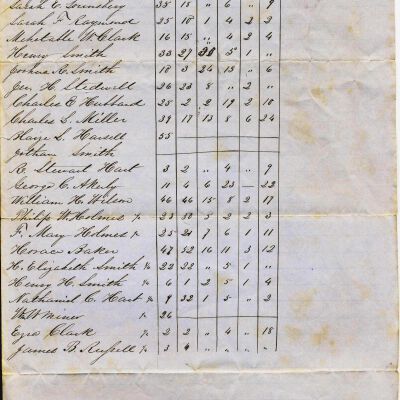 Sarah E. Lounsbery 35 15 " 6 " 9
Sarah F. Raymond 25 18 1 4 2 2
Mehetable W. Clark 16 15 " 4 2 4
Henry Smith 33 27 28 5 1 "
Joshua A. Smith 18 3 24 15 " 6
Geo. H. Stedwell 26 23 8 " 2 "
Charles E. Hubbard 25 2 2 19 2 10
Charles S. Miller 39 17 13 8 6 24
S. 55
Jotham Smith
R. Stewart Hart 3 2 " 4 " 9
George C. Akerly 11 4 6 23 — 22
William H. Wilson 46 46 15 8 2 17
Philip W. Holmes 23 5 2 2 3
F. Mary Holmes 25 21 7 6 1 11
Horace Baker 47 52 16 11 3 12
H. Elizabeth Smith 22 22 " 5 1 "
Henry H. Smith 6 1 2 5 1 4
Nathaniel C. Hart 9 32 1 5 " 2
W.W. Miner 26
Ezra Clark 2 2 " 4 " 18
James B. Russell 3 4 " " " "